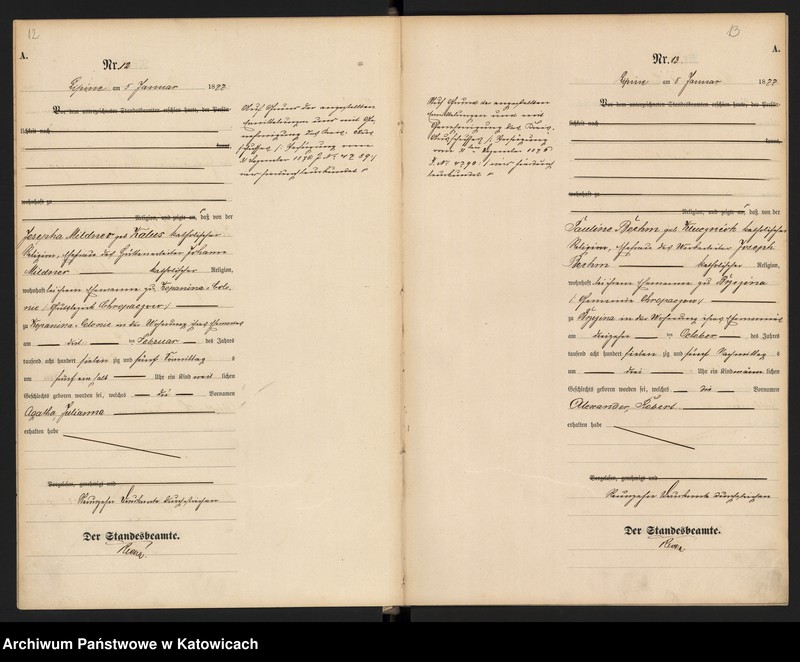 12
A.
Nr. 12
Lipine am 5 Januar 1877
Vor dem unterzeichneten Standesbeamten erschien heute, der Persön-
lichkeit nach
kannt,
wohnhaft zu
Religion, und zeigte an, daß von der
Josepha Mildner geb Kalus katholischer
Religion, Ehefrau des Hüttenarbeiter Johann
Mildner katholischer Religion,
wohnhaft bei ihrem Ehemanne zu Kopanina Colo-
nie (Gutsbezirk Chropaczow)
zu Kopanina-Colonie in der Wohnung ihres Ehemannes
am drei ten Februar des Jahres
tausend acht hundert sieben zig und fünf Vormittags
um fünf ein halb Uhr ein Kind weib lichen
Geschlechts geboren worden sei, welches die Vornamen
Agatha Julianna
erhalten habe
Vorgelesen, genehmigt und
Neunzehn Druckworte durchstrichen
Der Standesbeamte.
Auf Grund der angestellten
Ermittelungen und mit Ge-
nehmigung des Kreis Aus-
schusses (: Verfügung vom
11 Dezember 1876
13
A.
Nr. 13
Lipine am 5 Januar 1877
Auf Grund der angestellten
Ermittelungen und mit
Genehmigung des Kreis
Ausschusses (: Verfügung
vom 11ten Dezember 1876
Vor dem unterzeichneten Standesbeamten erschien heute, der Persön-
lichkeit nach
kannt,
wohnhaft zu
Religion, und zeigte an, daß von der
Pauline Boehm geb katholischer
Religion, Ehefrau des Joseph
Boehm katholischer Religion,
wohnhaft bei ihrem Ehemanne zu
(Gemeinde Chropaczow)
zu in der Wohnung ihres Ehemannes
am dreizehn ten October des Jahres
tausend acht hundert sieben zig und fünf Nachmittags
um drei Uhr ein Kind männ lichen
Geschlechts geboren worden sei, welches die Vornamen
Alexander, Robert
erhalten habe
Vorgelesen, genehmigt und
Neunzehn Druckworte durchstrichen
Der Standesbeamte.
Archiwum Państwowe w Katowicach